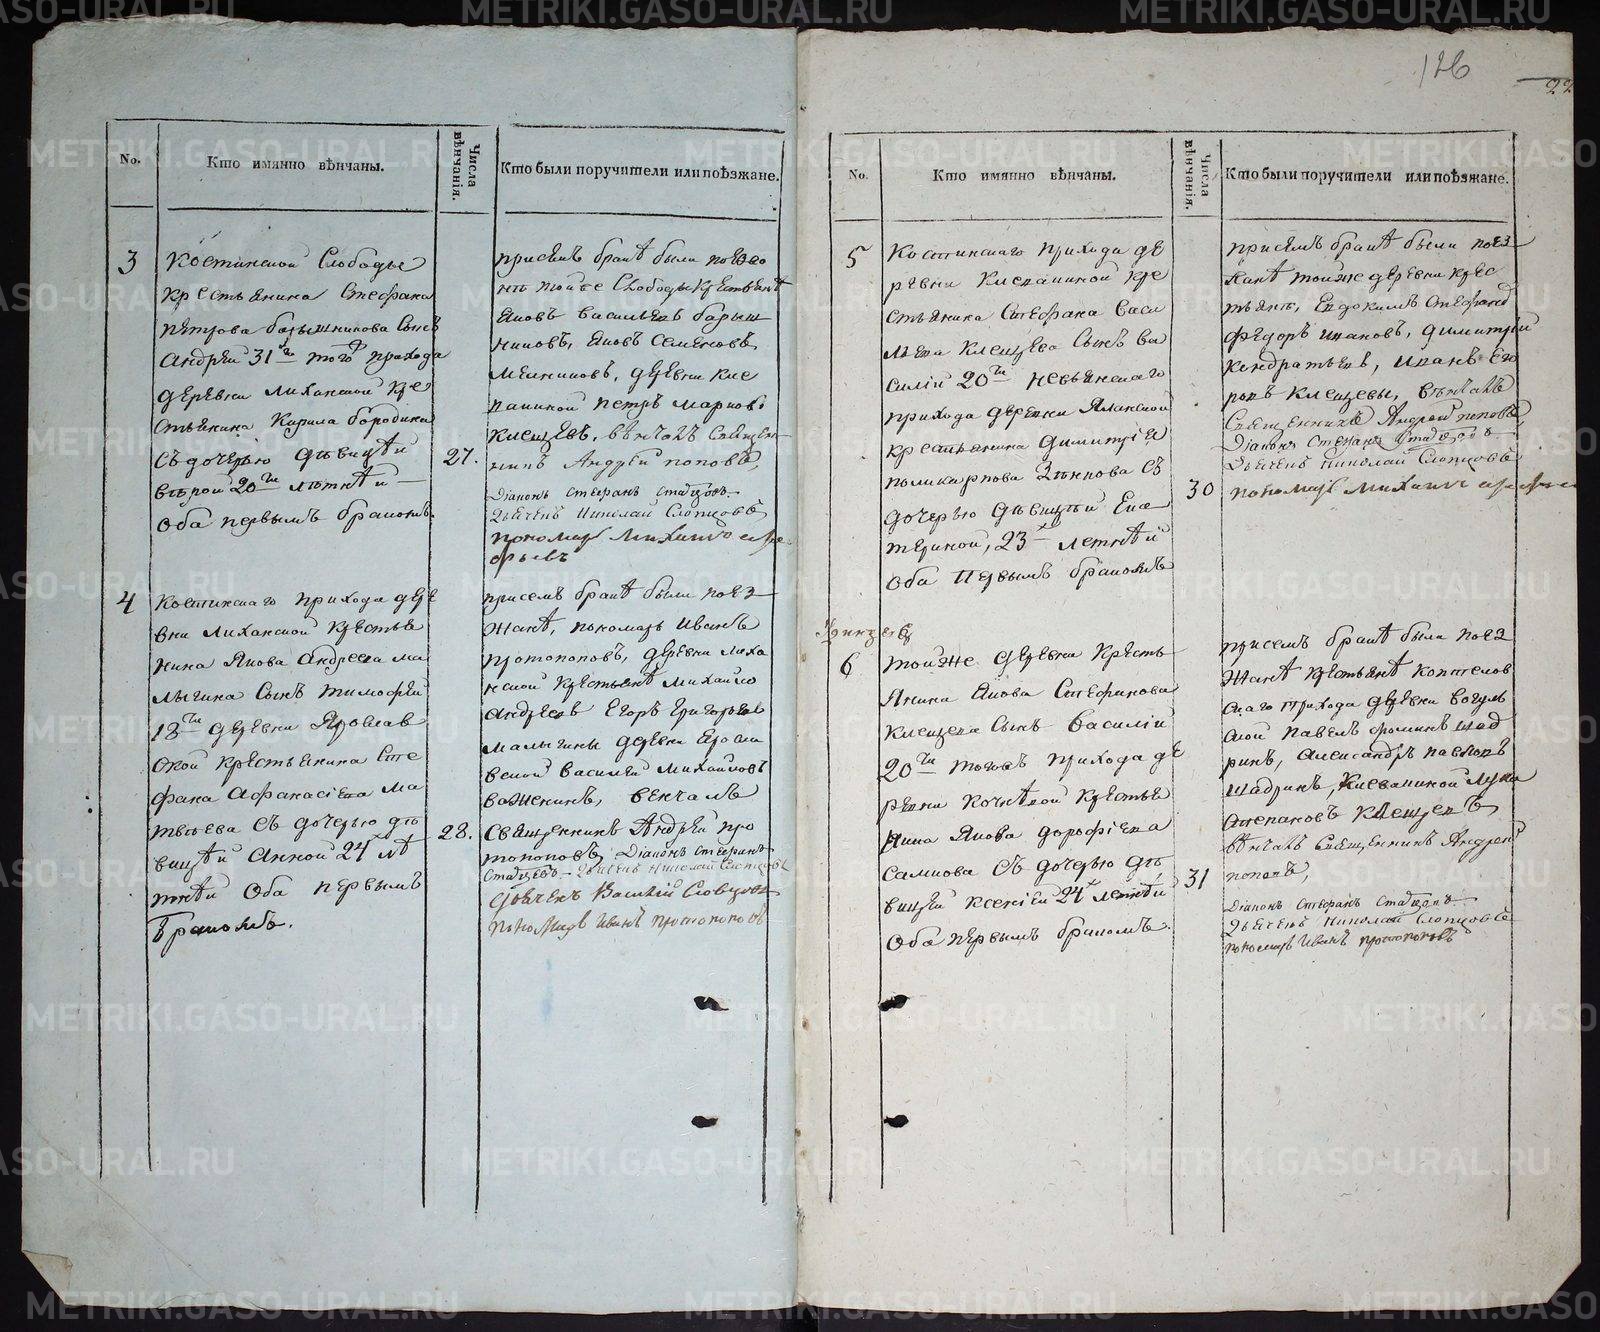 126
22
No.
Кто имянно вѣнчаны.
Числа вѣнчанія.
Кто были поручители или поѣзжане.
3
Костинской Слободы
крестьянина Стефана
Петрова Барышникова Сынъ
Андрей 31 того прихода
деревни Лиханской кре
стьянина Кирила Бородина
съ дочерью дѣвицѣй
20 лѣтнѣй
Оба первымъ бракомъ.
27.
присемъ бракѣ были поезжа
нѣ тойже Слободы крестьянѣ
Яковъ Васильевъ барыш
никовъ, Яковъ Семеновъ
Мелниковъ, деревни кле
пакиной петръ Марковъ
Клещевъ, вѣнчалъ Священ
никъ Андрей поповъ,
Діаконъ Стефанъ
Дьячекъ Николай Словцовъ
пономарь Михаило
4
Костинскаго прихода дере
вни Лиханской крестья
нина Якова Андреева ма
лыгина Сынъ тимофей
18 деревни Ярослав
ской крестьянина Сте
фана Афанасіева Ма
твѣева съ дочерью дѣ
вицѣй Анной 24 лѣ
тнѣй Оба первымъ
бракомъ.
28.
присемъ бракѣ были поез
жанѣ, пономарь Иванъ
протопоповъ, деревни лиха
нской крестьянѣ Михайло
Андреевъ Егоръ Григорьевъ
малыгины деревни Яросла
вской Василей Михайловъ
важенинъ, венчалъ
Священникъ Андрей про
топоповъ, Діаконъ Стефанъ
Дьячекъ Николай Словцовъ
Дьячекъ Василій Словцовъ
пономарь Иванъ протопоповъ
No.
Кто имянно вѣнчаны.
Числа вѣнчанія.
Кто были поручители или поѣзжане.
5
Костинскаго прихода де
ревни Клепакиной кре
стьянина Стефана Васи
льева Клещева Сынъ Ва
силій 20 невьянскаго
прихода деревни Яланской
крестьянина Димитріея
поликарпова Зѣнкова съ
дочерью дѣвицѣй Ека
териной, 23 летнѣй
Оба первымъ бракомъ
30
присемъ бракѣ были поез
жанѣ тойже деревни крес
тьянѣ, Евдокимъ Стефановъ
Федоръ ивановъ, Димитрій
кондратьевъ, иванъ Его
ровъ Клещевы, вѣнчалъ
Священникъ Андрей поповъ,
Діаконъ Стефанъ
Дьячекъ Николай Словцовъ
пономарь Михаило
6
тойже деревни кресть
янина Якова Стефанова
Клещева Сынъ Василій
20 тогожъ прихода де
ревни кочнѣвой крестья
нина Якова дорофіева
Самкова съ дочерью дѣ
вицей ксеніей 24 летнѣй
Оба первымъ бракомъ.
31
присемъ бракѣ были поез
жанѣ крестьянѣ коптелов
скаго прихода деревни вогуль
ской Павелъ фоминъ шад
ринъ, Александръ павловъ
шадринъ, Клепакиной Лука
степановъ Клещевъ,
вѣнчалъ Священникъ Андрей
поповъ,
Діаконъ Стефанъ
Дьячекъ Николай Словцовъ
пономарь Иванъ протопоповъ
METRIKI.GASO-URAL.RU